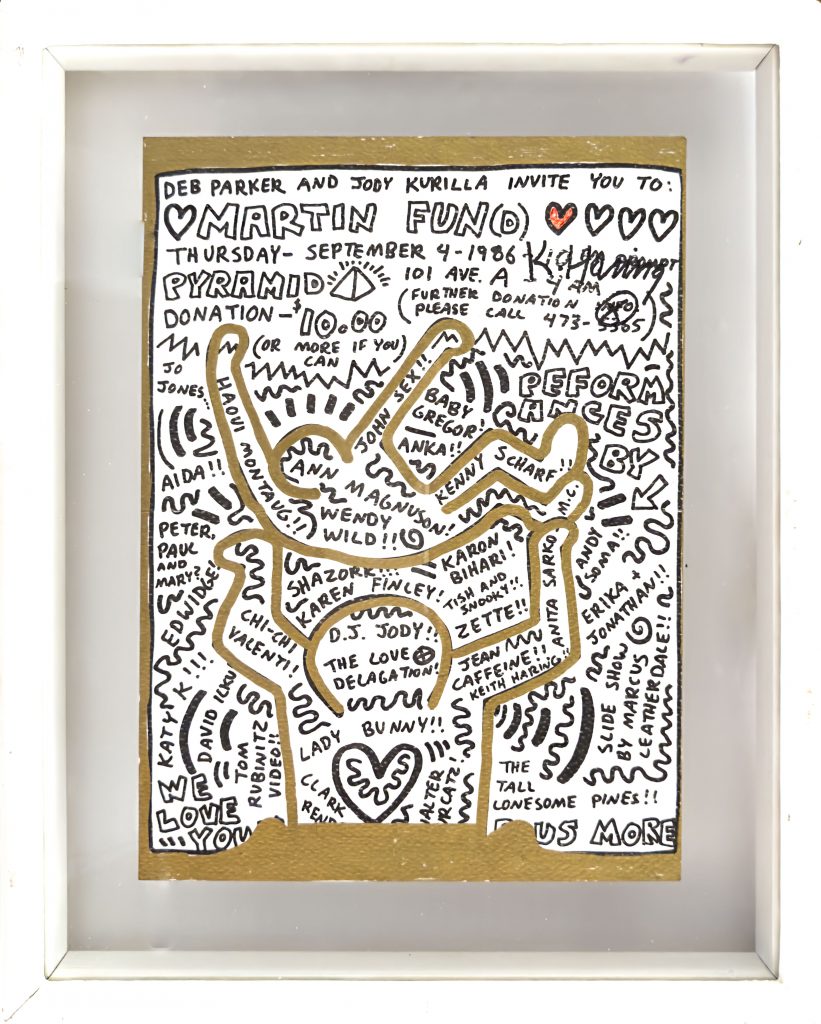 DEB PARKER AND JODY KURILLA INVITE YOU TO:
MARTIN FUN(D)
THURSDAY- SEPTEMBER 4-1986
PYRAMID 101 AVE. A 4 AM
DONATION-$10.00
(OR MORE IF YOU CAN)
(FURTHER DONATION INFO
PLEASE CALL 473-5365)
K. Haring
PEFORM
ANCES
BY
JO
JONES...
HAOUI MONTAUG!!
JOHN SEX!!
BABY
GREGOR!
ANKA!!
KENNY SCHARF!!
M.C.
ANN MAGNUSON!
WENDY
WILD!!
AIDA!!
PETER,
PAUL
AND
MARY?
EDWIDGE!
KATY K!!!
DAVID ILKU
TOM
RUBINITZ
VIDEO!!
CHI-CHI
VALENTI!
SHAZORK!!!
KAREN FINLEY!
KARON
BIHARI!
TISH AND
SNOOKY!!
ZETTE!!
ANITA SARKO
ANDY
SOMA!!
ERIKA +
JONATHAN!!
D.J. JODY!!
THE LOVE
DELAGATION!
JEAN
CAFFEINE!!
KEITH HARING!!
SLIDE SHOW
BY MARCUS
LEATHERDALE!!
LADY BUNNY!!
CLARK
THE
TALL
LONESOME PINES!!
WE
LOVE
YOU
PLUS MORE